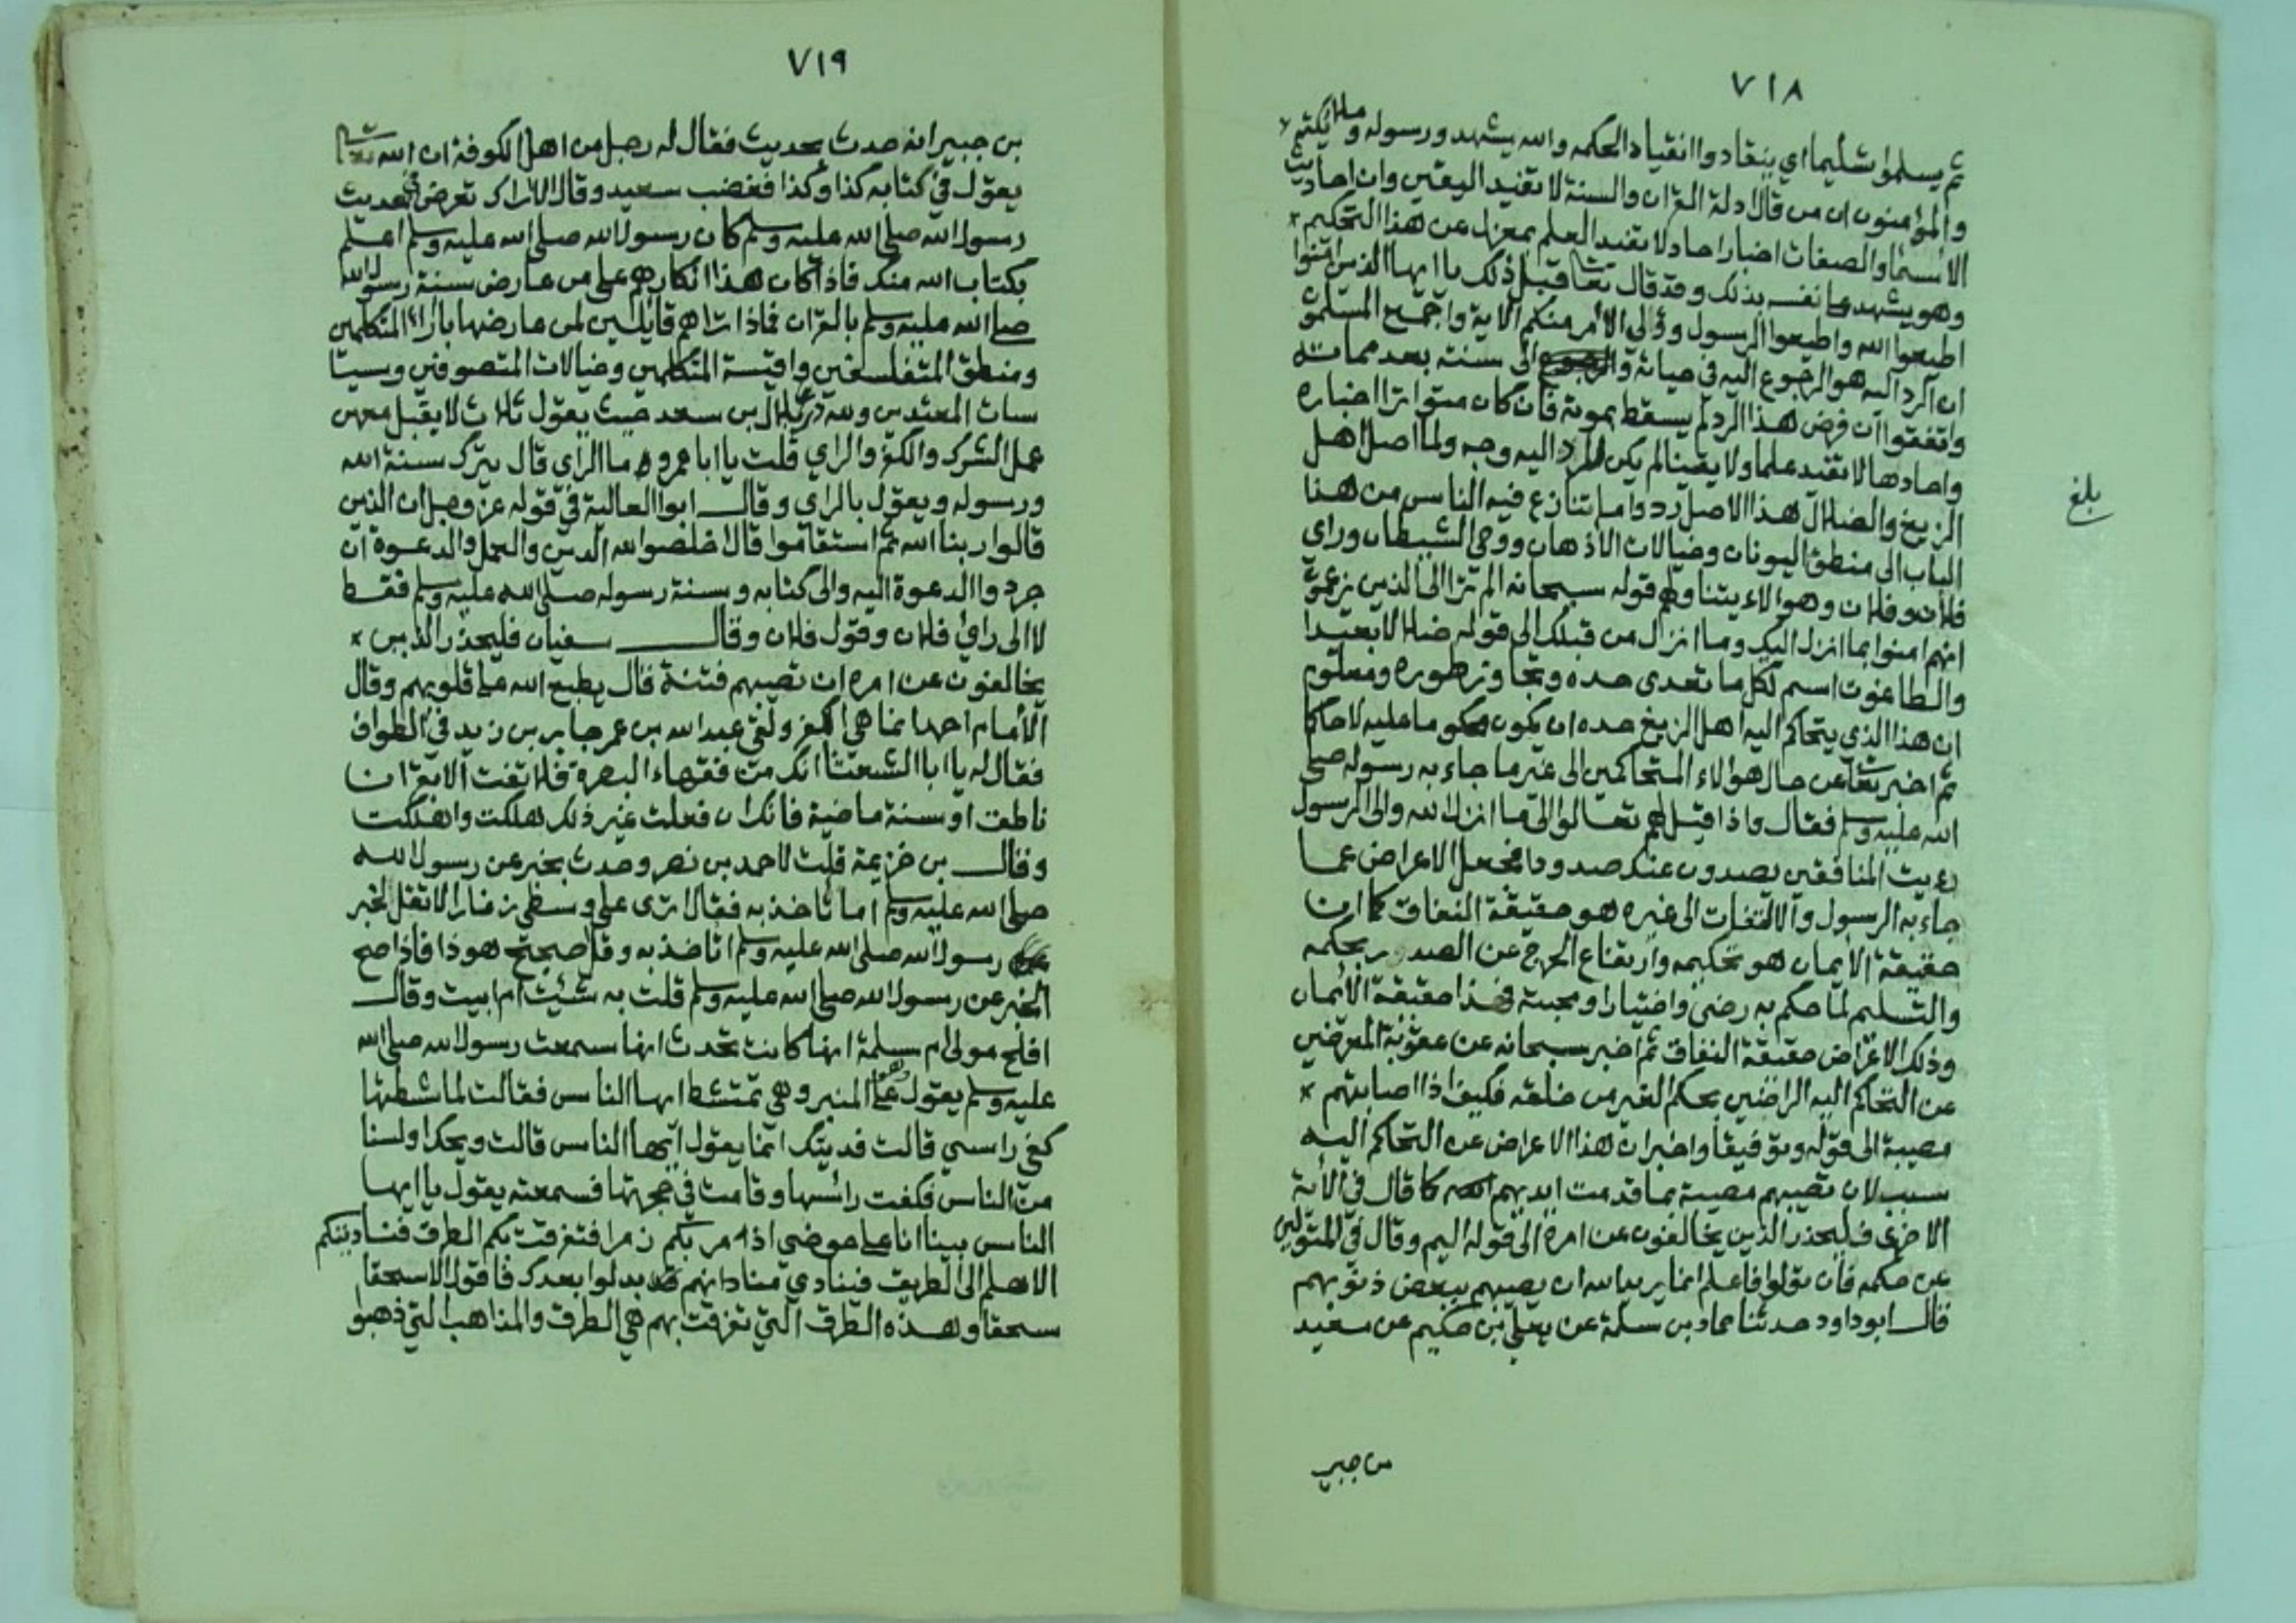 ٧١٨
ثم يسلموا تسليما اي ينقادوا انقيادا لحكمه والله يشهد ورسوله وملائكته
والمؤمنون ان من قال ادلة القران والسنة لا تفيد اليقين وان احاديث
الاسماء والصفات اخبار احاد لا تفيد العلم بمعزل عن هذا التحكيم
وهو يشهد على نفسه بذلك وقد قال تعا قبل ذلك يا ايها الذين امنوا
اطيعوا الله واطيعوا الرسول واولي الامر منكم الاية واجمع المسلمون
ان الرد اليه هو الرجوع اليه في حياته والرجوع الى سنته بعد مماته
واتفقوا ان فرض هذا الرد لم يسقط بموته فان كان متواترا اخباره
واحادها لا تفيد علما ولا يقينا لم يكن للرد اليه وجه ولما اصل اهل
الزيغ والضلال هذا الاصل ردوا ما تنازع فيه الناس من هذا
الباب الى منطق اليونان وخيالات الاذهان ووحي الشيطان وراي
فلان وفلان وهولاء يتناولهم قوله سبحانه الم ترا الى الذين يزعمون
انهم امنوا بما انزل اليك وما انزل من قبلك الى قوله ضلالا بعيدا
والطاغوت اسم لكل ما تعدى حده وتجاوز طوره ومعلوم
ان هذا الذي يتحاكم اليه اهل الزيغ حده ان يكون محكوما عليه لا حاكما
ثم اخبر تعا عن حال هولاء المتحاكمين الى غير ما جاء به رسوله صلى
الله عليه وسلم فقال واذا قيل لهم تعالوا الى ما انزل الله والى الرسول
رءيت المنافقين يصدون عنك صدودا فجعل الاعراض عما
جاء به الرسول والالتفات الى غيره هو حقيقة النفاق كما ان
حقيقة الايمان هو تحكيمه وارتفاع الحرج عن الصدور بحكمه
والتسليم لما حكم به رضى واختيارا ومحبة فهذا حقيقة الايمان
وذلك الاعراض حقيقة النفاق ثم اخبر سبحانه عن عقوبة المعرضين
عن التحاكم اليه الراضين بحكم الغير من خلقه فكيف اذا اصابتهم
مصيبة الى قوله وتوفيقا واخبر ان هذا الاعراض عن التحاكم اليه
سبب لان تصيبهم مصيبة بما قدمت ايديهم كما قال في الاية
الاخرى فليحذر الذين يخالفون عن امره الى قوله اليم وقال في المتولين
عن حكمه فان تولوا فاعلم انما يريد الله ان يصيبهم ببعض ذنوبهم
قال ابوداود حدثنا حماد بن سلمة عن يعلى بن حكيم عن سعيد
بن جبير
بلغ
٧١٩
بن جبير انه حدث بحديث فقال له رجل من اهل الكوفة ان الله تعا
يقول في كتابه كذا وكذا فغضب سعيد وقال الا اراك تعرض في حديث
رسول الله صلى الله عليه وسلم كان رسول الله صلى الله عليه وسلم اعلم
بكتاب الله منك فاذا كان هذا انكارهم على من عارض سنة رسول الله
صلى الله عليه وسلم بالقران فماذا تراهم قائلين لمن عارضها باراء المتكلمين
ومنطق المتفلسفين واقيسة المتكلمين وخيالات المتصوفين وسيا
سات المعتدين ولله در بلال بن سعد حيث يقول ثلاث لا يقبل معهن
عمل الشرك والكفر والراي قلت يا ابا عمرو ما الراي قال يترك سنة الله
ورسوله ويقول بالراي وقال ابوا العالية في قوله عز وجل ان الذين
قالوا ربنا الله ثم استقاموا قال اخلصوا لله الدين والعمل والدعوة ان
جردوا الدعوة اليه والى كتابه وسنة رسوله صلى الله عليه وسلم فقط
لا الى راي فلان وقول فلان وقال سفيان فليحذر الذين
يخالفون عن امره ان تصيبهم فتنة قال يطبع الله على قلوبهم وقال
الامام احمد انما هي الكفر ولقي عبد الله بن عمر جابر بن زيد في الطواف
فقال له يا ابا الشعثا انك من فقهاء البصرة فلا تفت الا بقران
ناطق او سنة ماضية فانك ان فعلت غير ذلك هلكت واهلكت
وقال بن خزيمة قلت لاحمد بن نصر وحدث بخبر عن رسول الله
صلى الله عليه وسلم اما تاخذ به فقال اترى على وسطي زنارا لا تقل لخبر
رسول الله صلى الله عليه وسلم اتاخذ به وقل صحيح هو ذا فاذا صح
الخبر عن رسول الله صلى الله عليه وسلم قلت به شئت ام ابيت وقال
افلح مولى ام سلمة انها كانت تحدث انها سمعت رسول الله صلى الله
عليه وسلم يقول وهو على المنبر وهي تمتشط ايها الناس فقالت لماشطتها
كفي راسي قالت فديتك انما يقول ايها الناس قالت ويحك اولسنا
من الناس فكفت رائسها وقامت في حجرتها فسمعته يقول يا ايها
الناس بينا انا على حوضي اذ مر بكم زمرا فتفرقت بكم الطرق فناديتكم
الا هلم الى الطريق فينادي مناد انهم قد بدلوا بعدك فاقول الا سحقا
سحقا وهذه الطرق التي تفرقت بهم هي الطرق والمذاهب التي ذهبوا